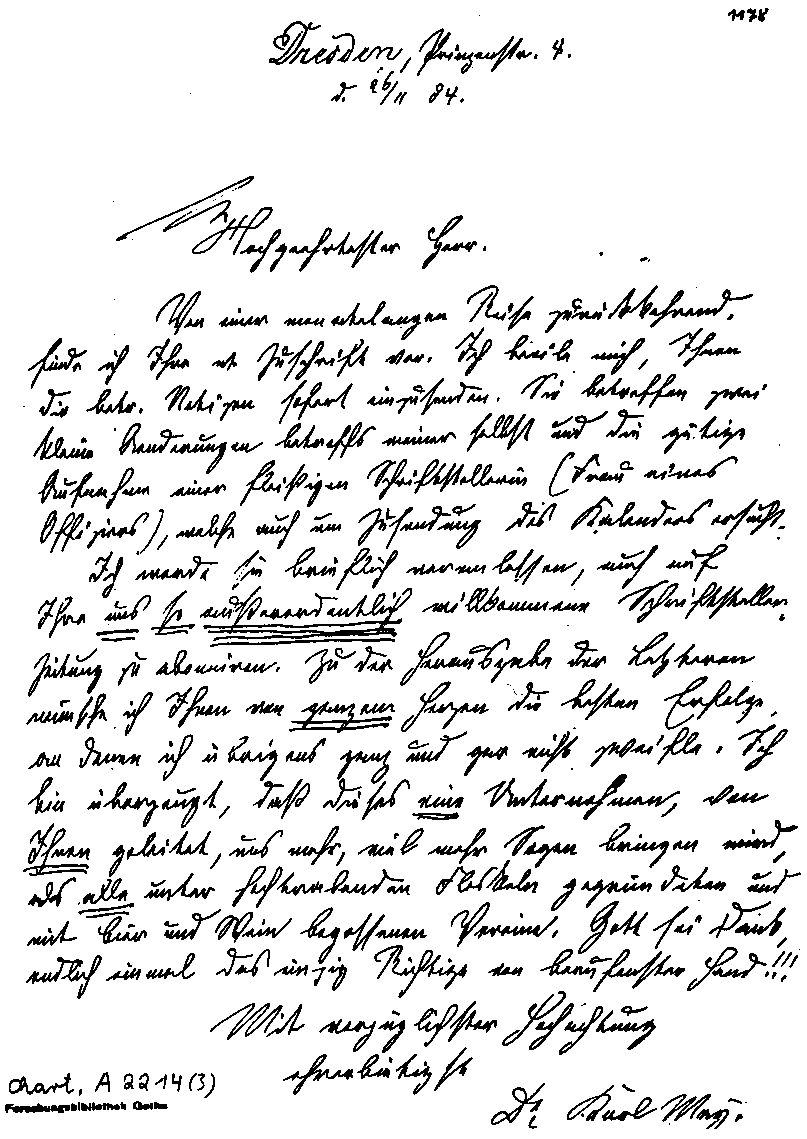 1178
Dresden, Prinzenstr. 4.
d. 26/11 84.
Hochgeehrtester Herr.
Von einer monatelangen Reise zurückkehrend,
finde ich Ihre Zuschrift vor. Ich beeile mich, Ihnen
die betr. Notizen sofort einzusenden. Sie betreffen zwei
kleine Aenderungen betreffs meiner selbst und die gütige
Aufnahme einer fleißigen Schriftstellerin (Frau eines
Offiziers), welche auch um Zusendung des Kalenders ersucht.
Ich werde sie brieflich veranlassen, auch auf
Ihre uns so außerordentlich willkommene Schriftsteller-
Zeitung zu aboniren. Zu der Herausgabe der Letzteren
wünsche ich Ihnen von ganzem Herzen die besten Erfolge,
an denen ich übrigens ganz und gar nicht zweifle. Ich
bin überzeugt, daß dieses eine Unternehmen, von
Ihnen geleitet, uns mehr, viel mehr Segen bringen wird,
als alle unter hochtrabenden Floskeln gegründeten und
mit Bier und Wein begossenen Vereine. Gott sei Dank,
endlich einmal das einzig Richtige von berufenster Hand!!!
Mit vorzüglichster Hochachtung
ehrerbietigst
Dr. Karl May.
Chart. A 2214(3)
Forschungsbibliothek Gotha